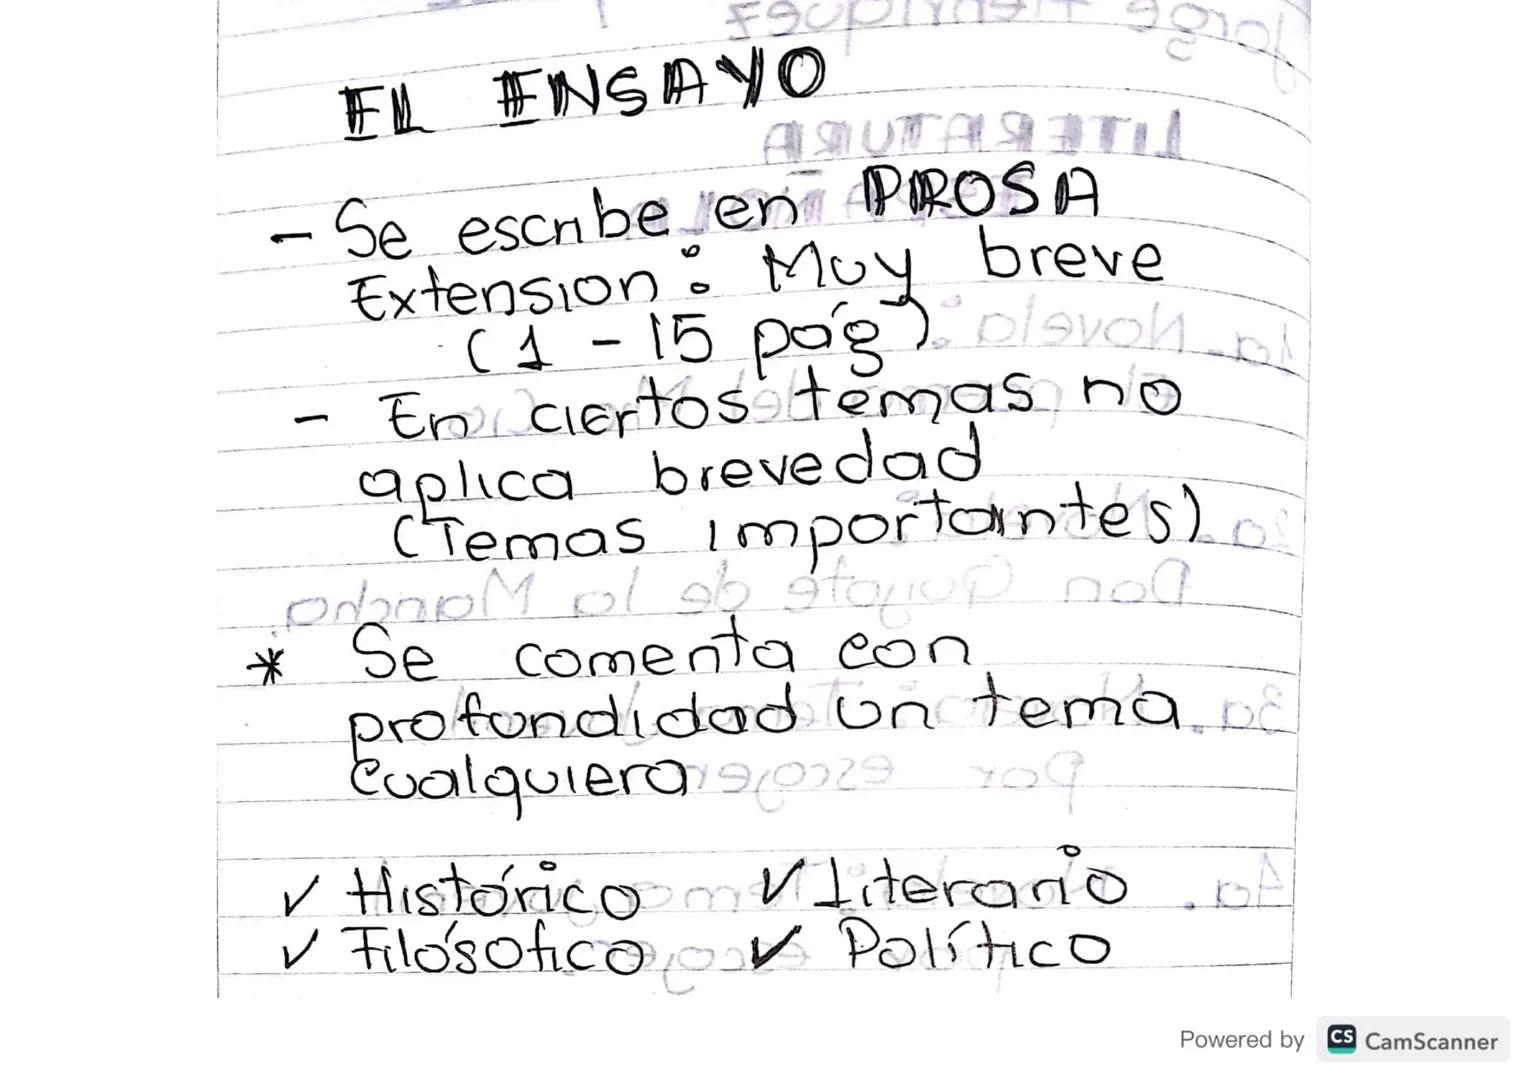 EL ENSAYO
- Se escribe en PROSA
Extension: Muy breve
(1 - 15 pág)
- En ciertos temas no
aplica brevedad
(Temas importantes)
* Se comenta con
profundidad un tema
cualquiera
✓ Histórico ✓ Literario
✓ Filósofico ✓ Político
Powered by CS CamScanner